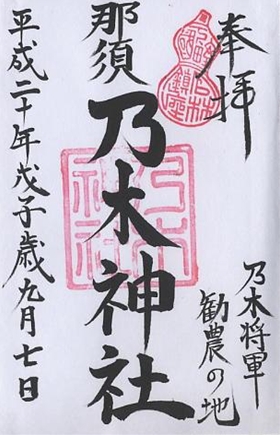 奉拝
乃木将軍
勧農の地
那須
乃木神社
平成二十年戊子歳九月七日
乃木
神社